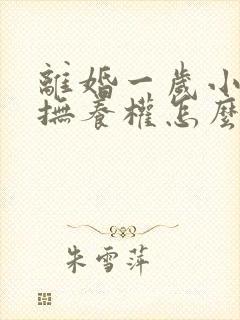 離婚一歲小
撫養權怎麼
朱雪萍